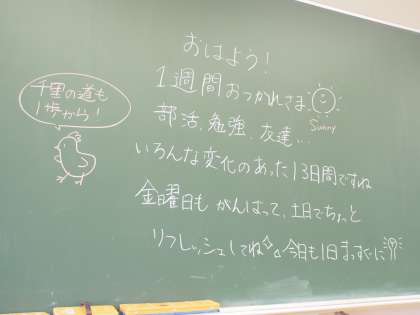 千里の道も
1歩から!
おはよう!
1週間おつかれさま
Sunny
部活、勉強、友達…
いろんな変化のあった13日間ですね
金曜日もがんばって、土日でちょっと
リフレッシュしてね。今日も1日まっすぐに